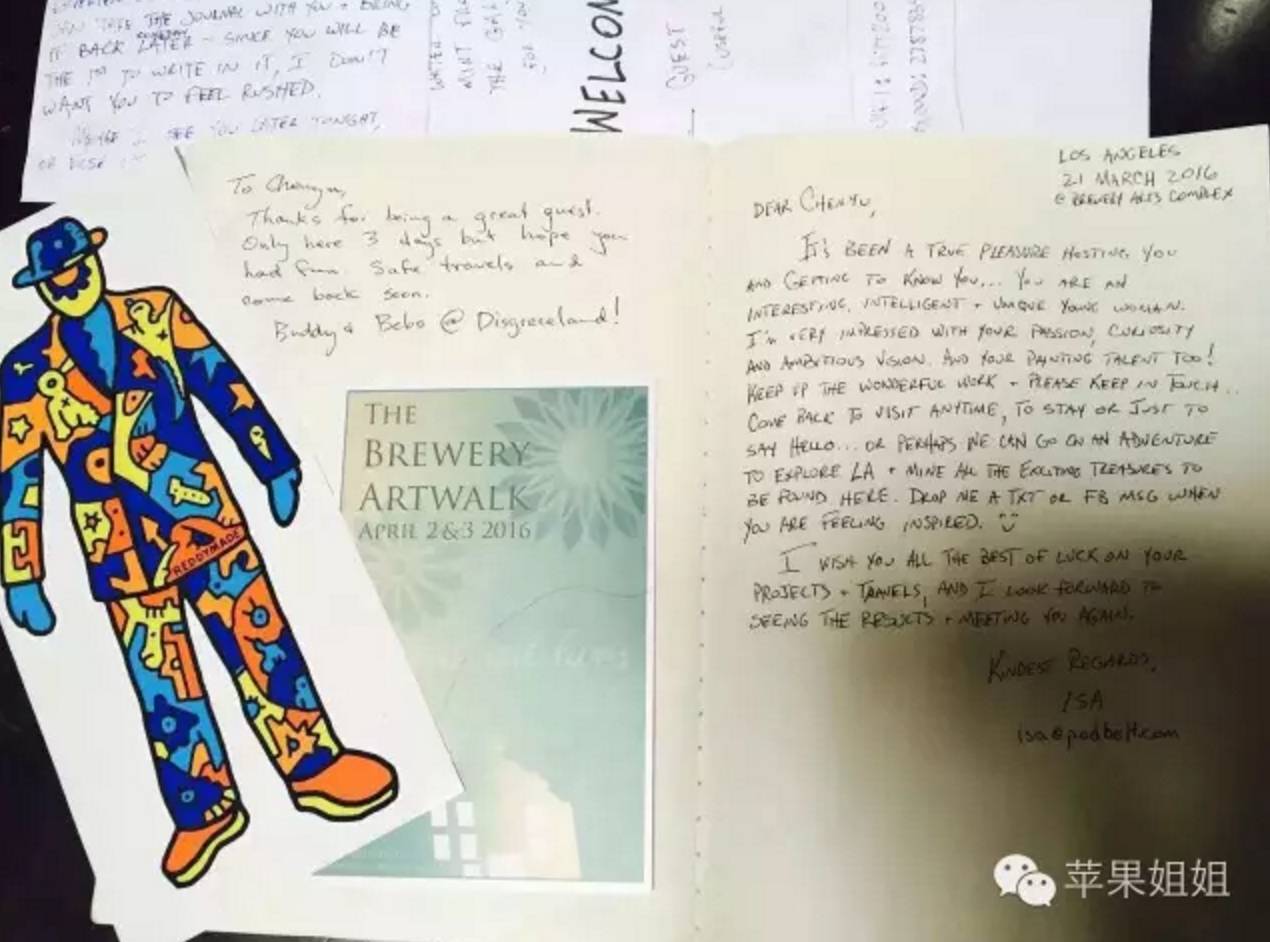 THE JOURNAL WITH YOU + BRING
IT BACK LATER - SINCE YOU WILL BE
THE 1ST TO WRITE IN IT, I DON'T
WANT YOU TO FEEL RUSHED.
SEE YOU LATER TONIGHT,
MINT
THE
FOR YOU
WELCOM
GUEST
USEFUL
To Chenyu,
Thanks for being a great guest.
Only here 3 days but hope you
had fun. Safe travels and
come back soon.
Buddy & Bebo @ Disgraceland!
REDDYMADE
THE
BREWERY
ARTWALK
APRIL 2&3 2016
LOS ANGELES
21 MARCH 2016
@ BREWERY ARTS COMPLEX
DEAR CHENYU,
IT'S BEEN A TRUE PLEASURE HOSTING YOU
AND GETTING TO KNOW YOU... YOU ARE AN
INTERESTING, INTELLIGENT + UNIQUE YOUNG WOMAN.
I'M VERY IMPRESSED WITH YOUR PASSION, CURIOSITY
AND AMBITIOUS VISION. AND YOUR PAINTING TALENT TOO!
KEEP UP THE WONDERFUL WORK + PLEASE KEEP IN TOUCH...
COME BACK TO VISIT ANYTIME, TO STAY OR JUST TO
SAY HELLO... OR PERHAPS WE CAN GO ON AN ADVENTURE
TO EXPLORE LA + MINE ALL THE EXCITING TREASURES TO
BE FOUND HERE. DROP ME A TXT OR FB MSG WHEN
YOU ARE FEELING INSPIRED.
I WISH YOU ALL THE BEST OF LUCK ON YOUR
PROJECTS + TRAVELS, AND I LOOK FORWARD TO
SEEING THE RESULTS + MEETING YOU AGAIN.
KINDEST REGARDS,
ISA
isa@podbelt.com
苹果姐姐